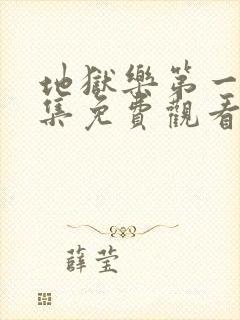 地獄樂第一
集免費觀看
薛莹